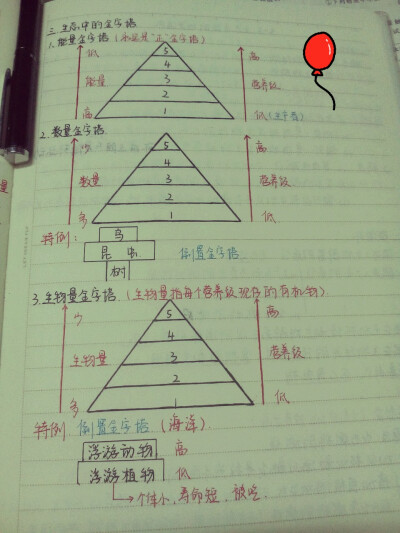 三.生态中的金字塔
1.能量金字塔(永远是"正"金字塔)
低 5 高
4
能量 3 营养级
2
高 1 低(生产者)
2.数量金字塔
少 5 高
4
数量 3 营养级
2
多 1 低
特例:鸟
昆虫 倒置金字塔
树
3.生物量金字塔(生物量指每个营养级现存的有机物)
少 5 高
4
生物量 3 营养级
2
多 1 低
特例 倒置金字塔(海洋)
浮游动物 高
浮游植物 低
个体小,寿命短,被吃.